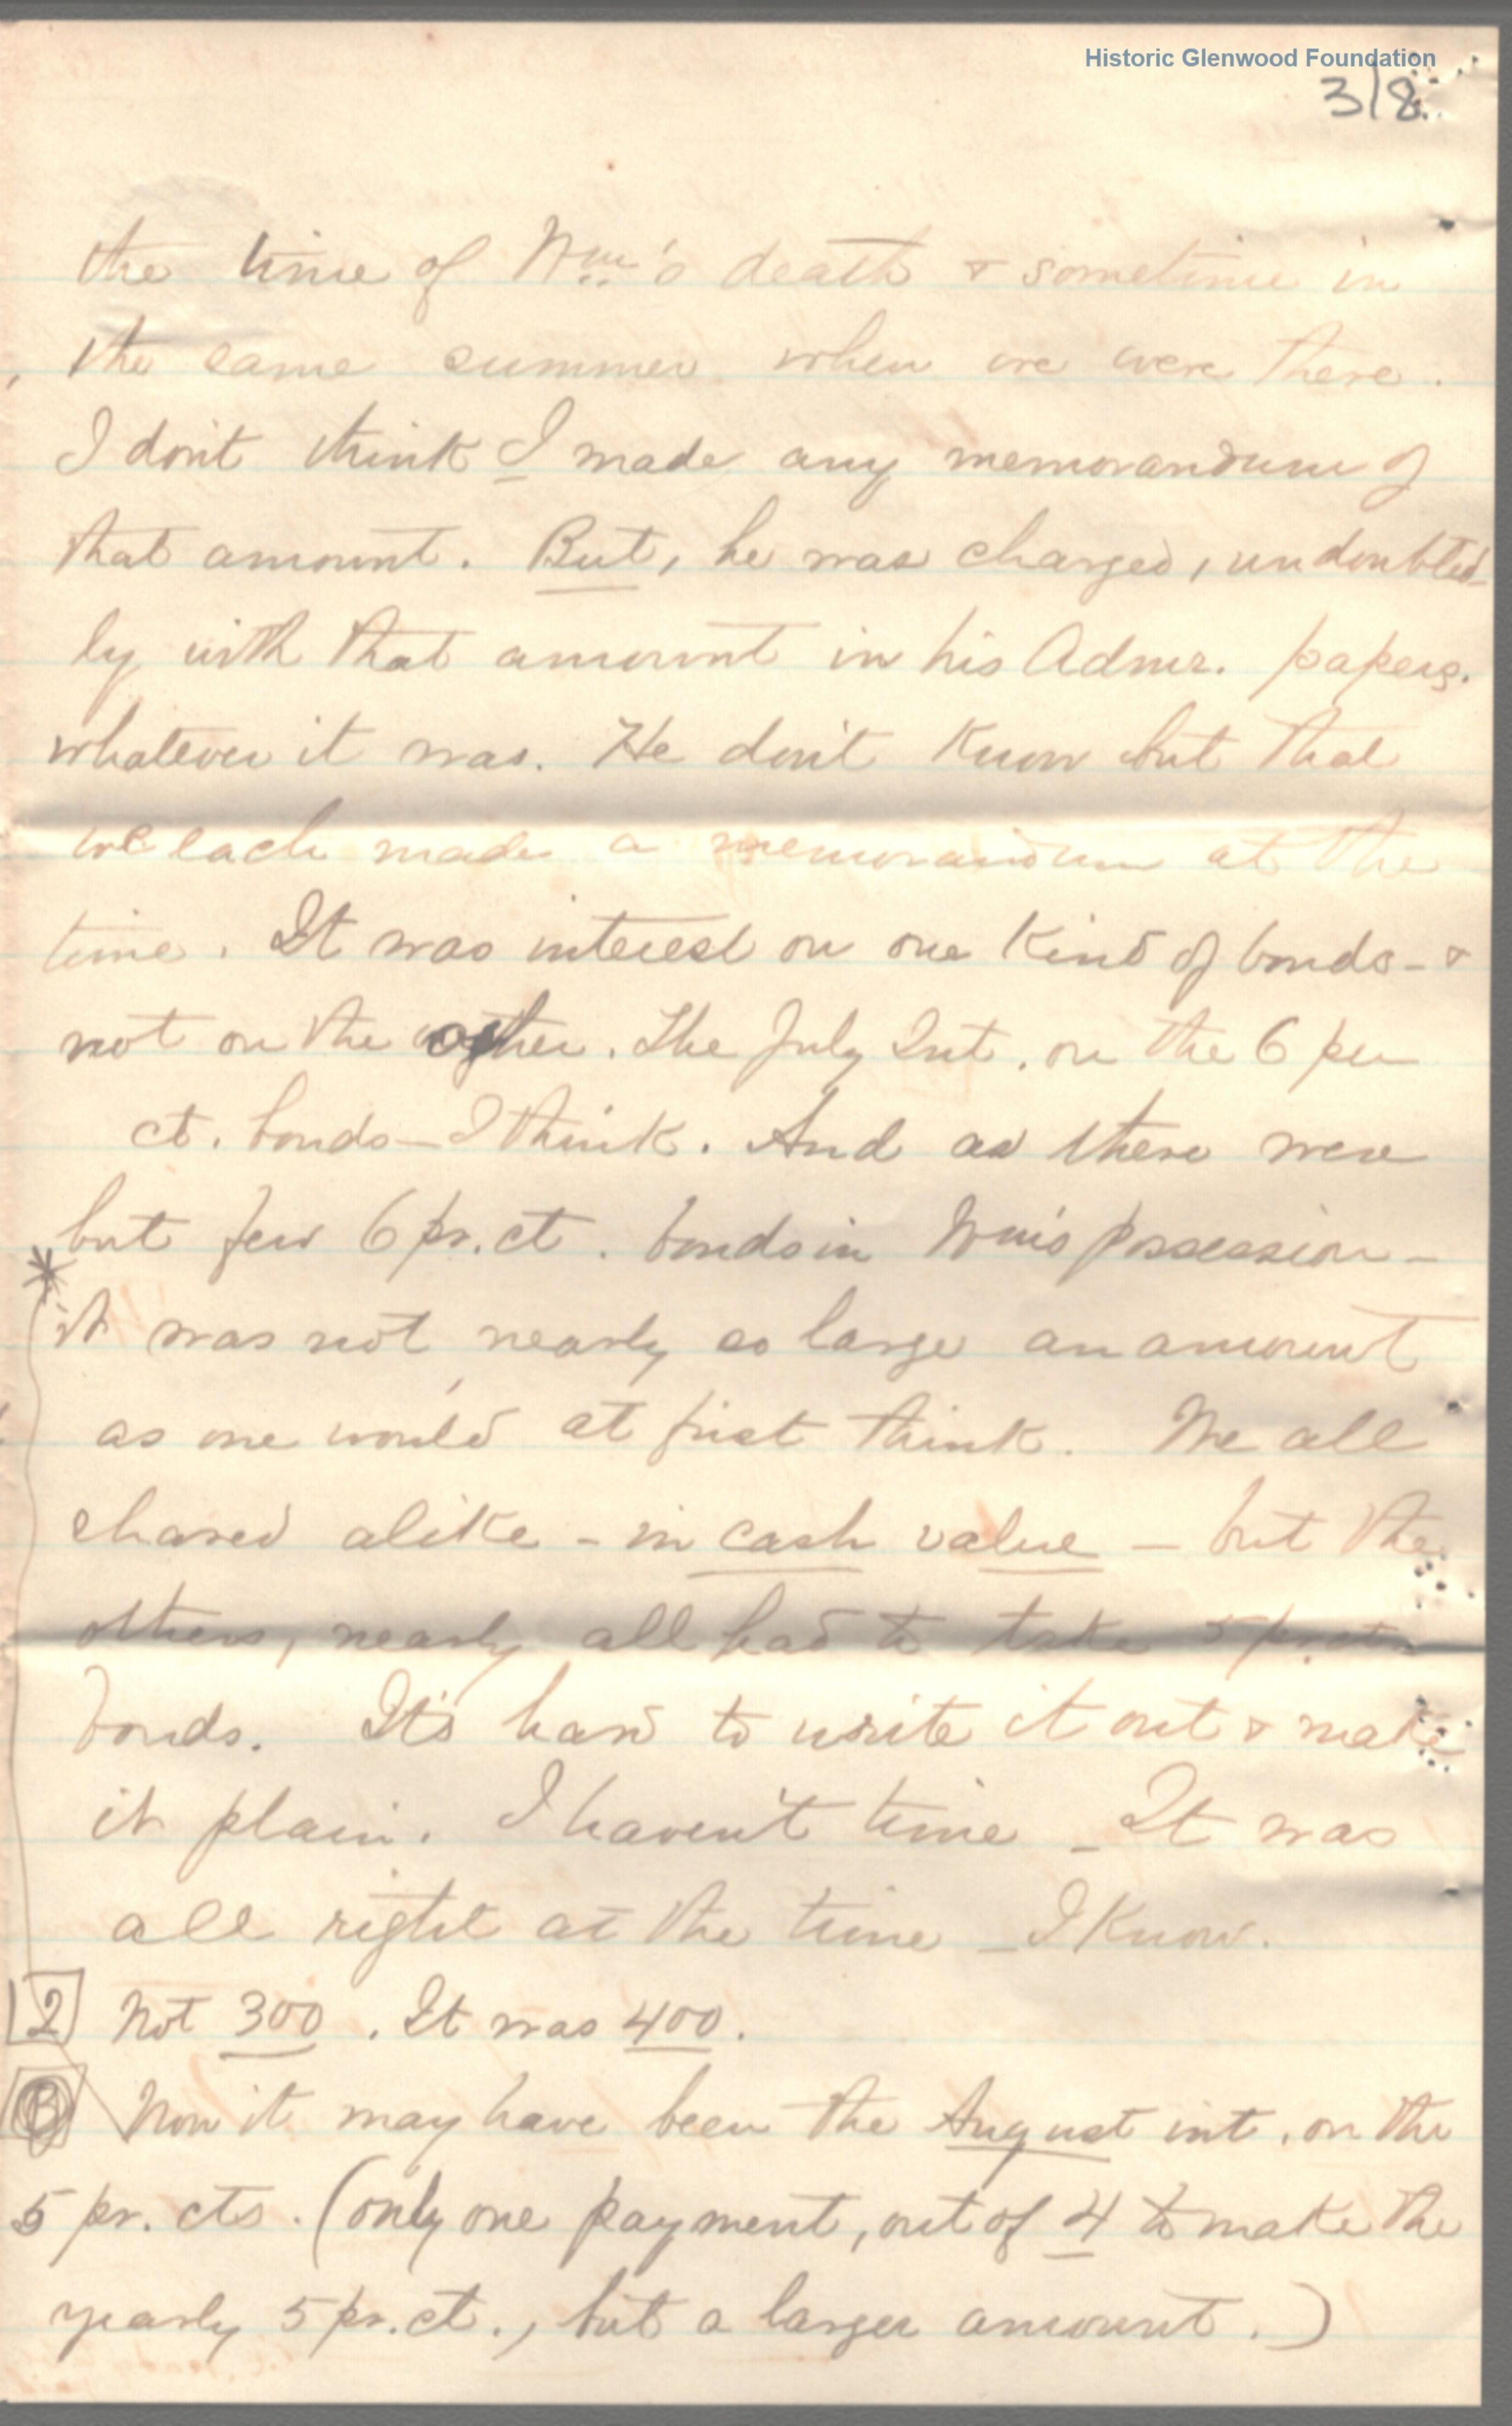 Historic Glenwood Foundation
3/8
the time of Wm's death & sometime in
the same summer when we were there.
I don't think I made any memorandum of
that amount. But, he was charged, undoubted-
ly with that amount in his Admr. papers.
whatever it was. He don't know but that
we each made a memorandum at the
time. It was interest on one kind of bonds - &
not on the other. The July Int. on the 6 per
ct. bonds - I think. And as there were
but few 6 pr. ct. bonds in Wm's possession -
it was not nearly so large an amount
as one would at first think. We all
shared alike - in cash value - but the
others, nearly all had to take 5 pr. cts
bonds. It's hard to write it out & make
it plain. I havent time - It was
all right at the time - I know.
2 Not 300. It was 400.
Now it may have been the August int. on the
5 pr. cts. (only one payment, out of 4 to make the
yearly 5 pr. ct., but a larger amount.)